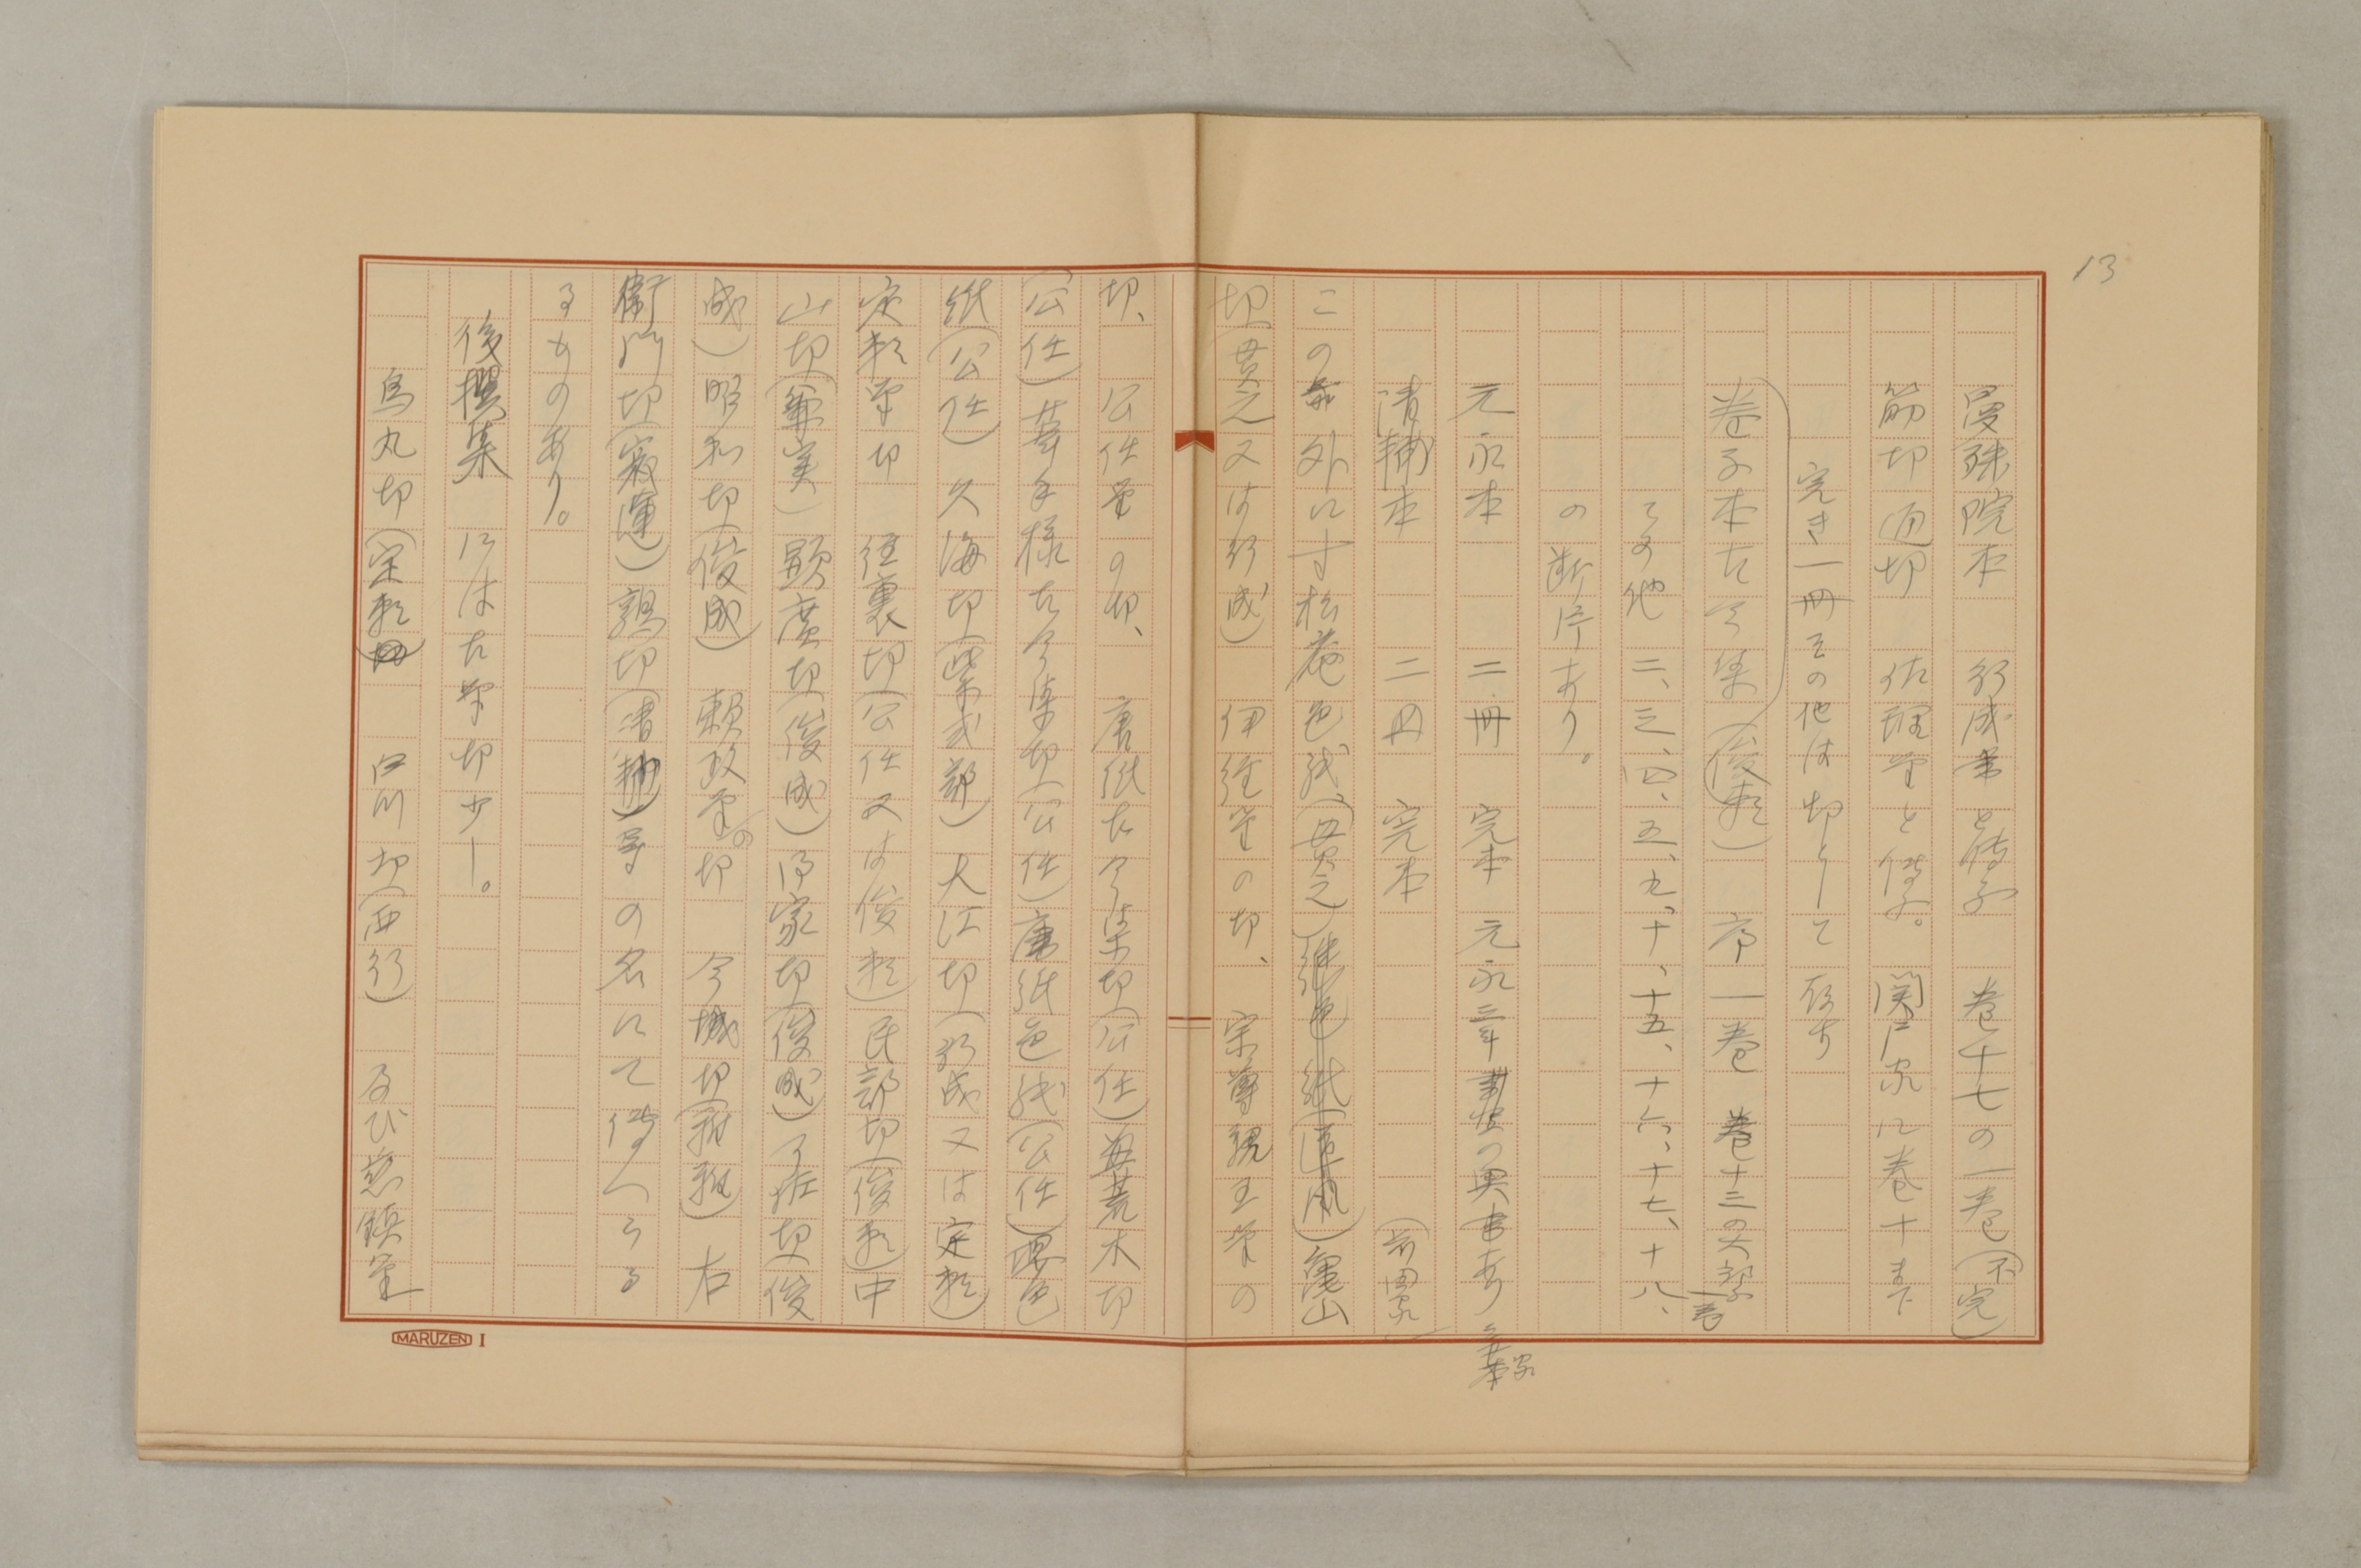 13
曼殊院本 行成筆と傳ふ 巻十七の一巻(不完)
筋切通切 佐理筆と傳ふ。 関戸家に巻十
完き一冊その他は切として
巻子本古今集(俊頼) 序一巻 巻十三の大部一巻
その他 二、三、四、五、九、十、十五、十六、十七、十八、
の断片あり。
元永本 二冊 完本 元永三年 の奥書あり
清輔本 二冊 完本 (前田家)
この外に寸松菴色紙(貫之)継色紙(道風)亀山
切(貫之又は行成) 伊経筆の切、 宗尊親王筆の
切、 公任筆の切、 唐紙古今集切(公任)荒木切
(公任)葦手様古今集切(公任)唐紙色紙(公任)堺色
紙(公任)久海切(紫式部)大江切(行成又は定頼)
定頼筆切 経裏切(公任又は俊頼)民部切(俊頼)中
山切(兼実) 顕広切(俊成)御家切(俊成)了佐切(俊
成)昭和切(俊成) 頼政筆の切 今城切(雅経) 右
衛門切(寂蓮)鶉切(清輔)等の名にて傳へらる
るものあり。
後撰集 には古筆切少し。
烏丸切(定頼) 白川切(西行) 及び慈鎮筆
MARUZEN I